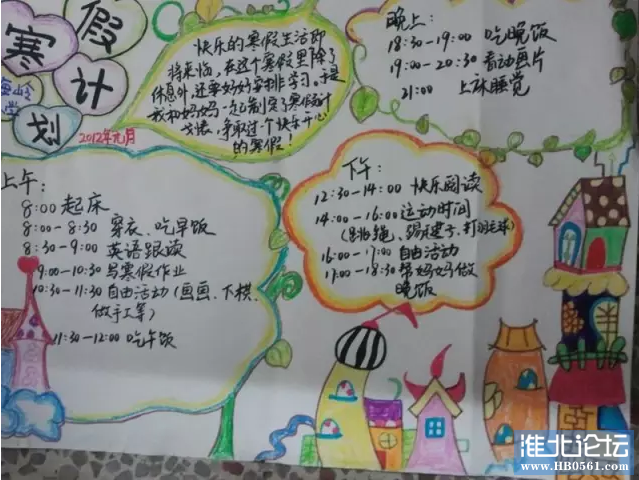 寒假计划
2012年元月
快乐的寒假生活即
将来临,在这个寒假里除了
休息外,还要好好安排学习。于是
我和妈妈一起制定了寒假计
划表,争取过一个快乐开心
的寒假!
上午:
8:00 起床
8:00-8:30 穿衣、吃早饭
8:30-9:00 英语跟读
9:00-10:30 写寒假作业
10:30-11:30 自由活动(画画、下棋、
做手工等)
11:30-12:00 吃午饭
下午:
12:30-14:00 快乐阅读
14:00-16:00 运动时间
(跳绳、踢毽子、打羽毛球)
16:00-17:00 自由活动
17:00-18:30 帮妈妈做
晚饭
晚上:
18:30-19:00 吃晚饭
19:00-20:30 看动画片
21:00 上床睡觉
淮北论坛
www.HB0561.com